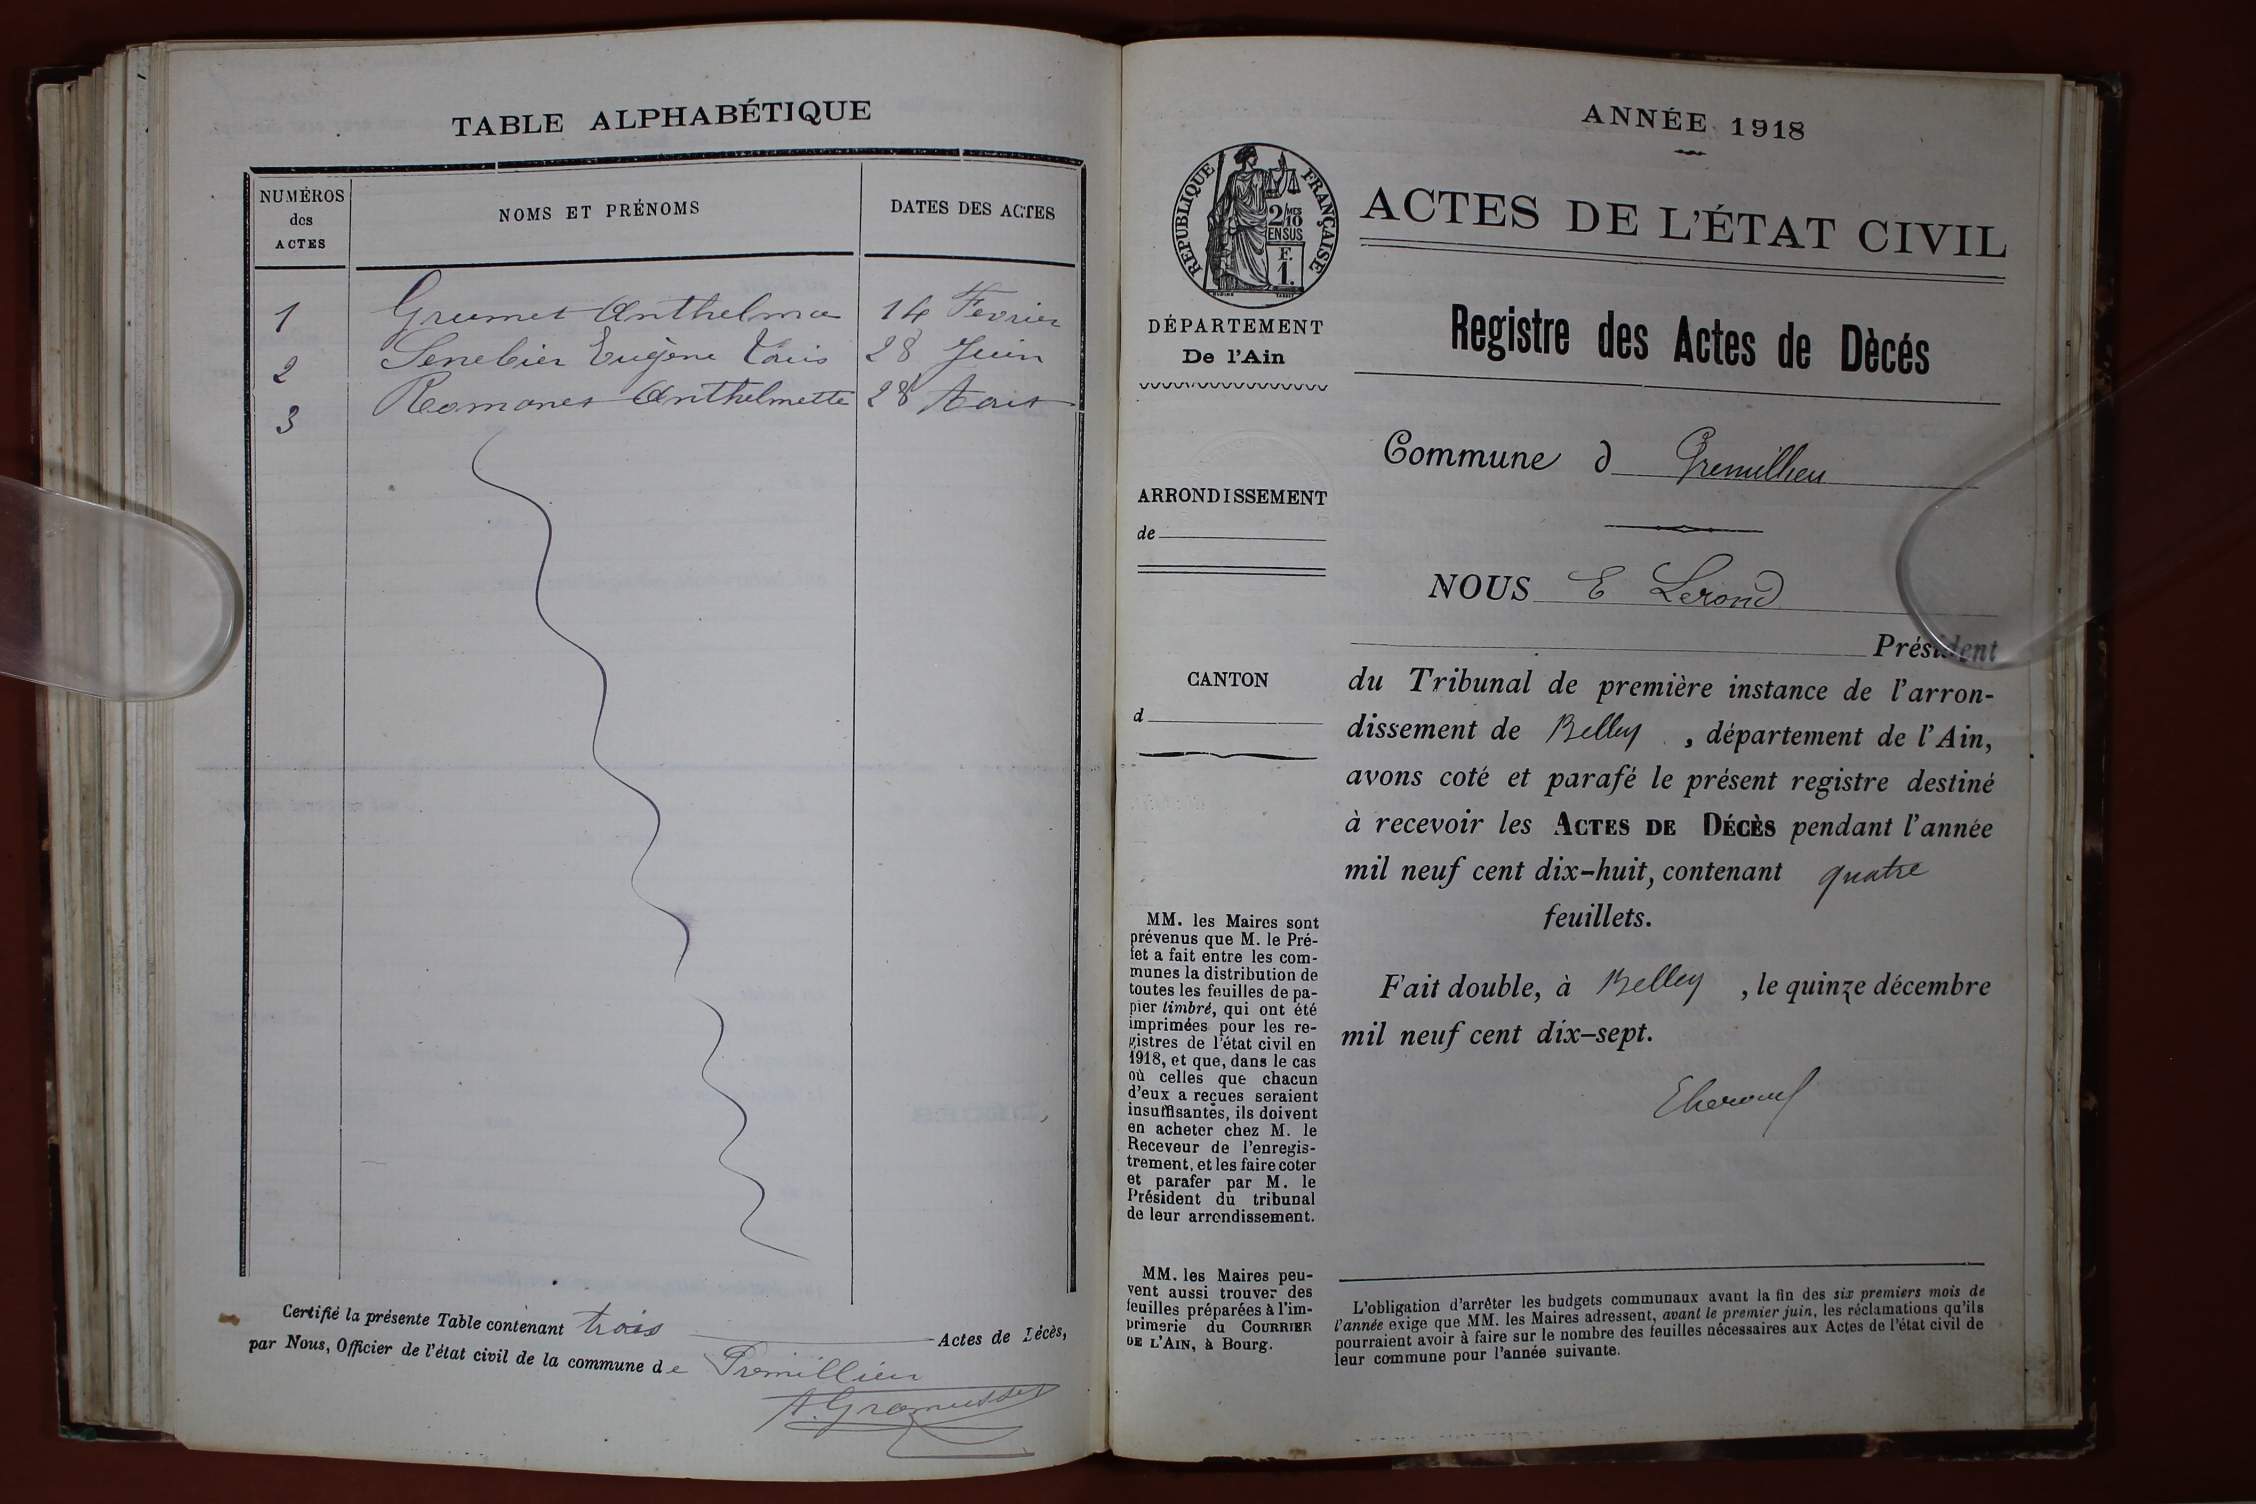 TABLE ALPHABÉTIQUE
NUMÉROS
des
ACTES
NOMS ET PRÉNOMS
DATES DES ACTES
1 Grumet Anthelme 14 Fevrier
2 Senebier Eugène Louis 28 Juin
3 Romanet Anthelmette 28 Aout
Certifié la présente Table contenant trois Actes de Décès,
par Nous, Officier de l'état civil de la commune de Prémillieu
A. Gramusset
ANNÉE 1918
ACTES DE L'ÉTAT CIVIL
RÉPUBLIQUE FRANÇAISE
2/10 MES
EN SUS
F.
1.
DÉPARTEMENT
De l'Ain
Registre des Actes de Dècés
Commune d Premillieu
ARRONDISSEMENT
de
NOUS E Lerond
Président
CANTON
d
du Tribunal de première instance de l'arron-
dissement de Belley, département de l'Ain,
avons coté et parafé le présent registre destiné
à recevoir les ACTES DE DÉCÈS pendant l'année
mil neuf cent dix-huit, contenant quatre
feuillets.
Fait double, à Belley, le quinze décembre
mil neuf cent dix-sept.
MM. les Maires sont
prévenus que M. le Pré-
fet a fait entre les com-
munes la distribution de
toutes les feuilles de pa-
pier timbré, qui ont été
imprimées pour les re-
gistres de l'état civil en
1918, et que, dans le cas
où celles que chacun
d'eux a reçues seraient
insuffisantes, ils doivent
en acheter chez M. le
Receveur de l'enregis-
trement, et les faire coter
et parafer par M. le
Président du tribunal
de leur arrondissement.
MM. les Maires peu-
vent aussi trouver des
feuilles préparées à l'im-
primerie du COURRIER
DE L'AIN, à Bourg.
L'obligation d'arrêter les budgets communaux avant la fin des six premiers mois de
l'année exige que MM. les Maires adressent, avant le premier juin, les réclamations qu'ils
pourraient avoir à faire sur le nombre des feuilles nécessaires aux Actes de l'état civil de
leur commune pour l'année suivante.